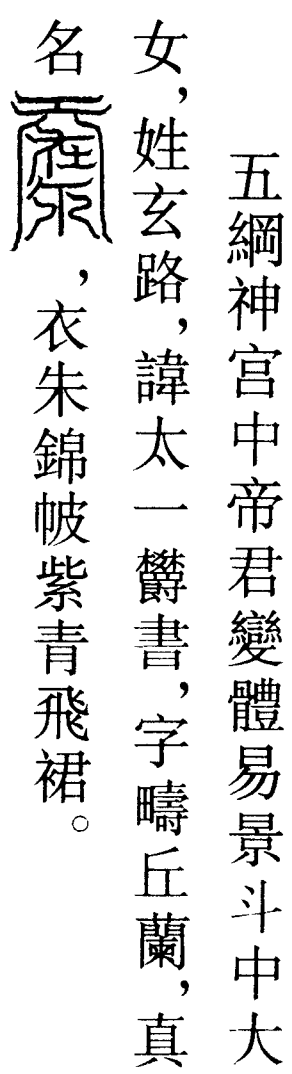 五綱神宫中帝君變體易景斗中大
女，姓玄路，諱太一欝書，字疇丘蘭，真
名，衣朱錦帔紫青飛裙。